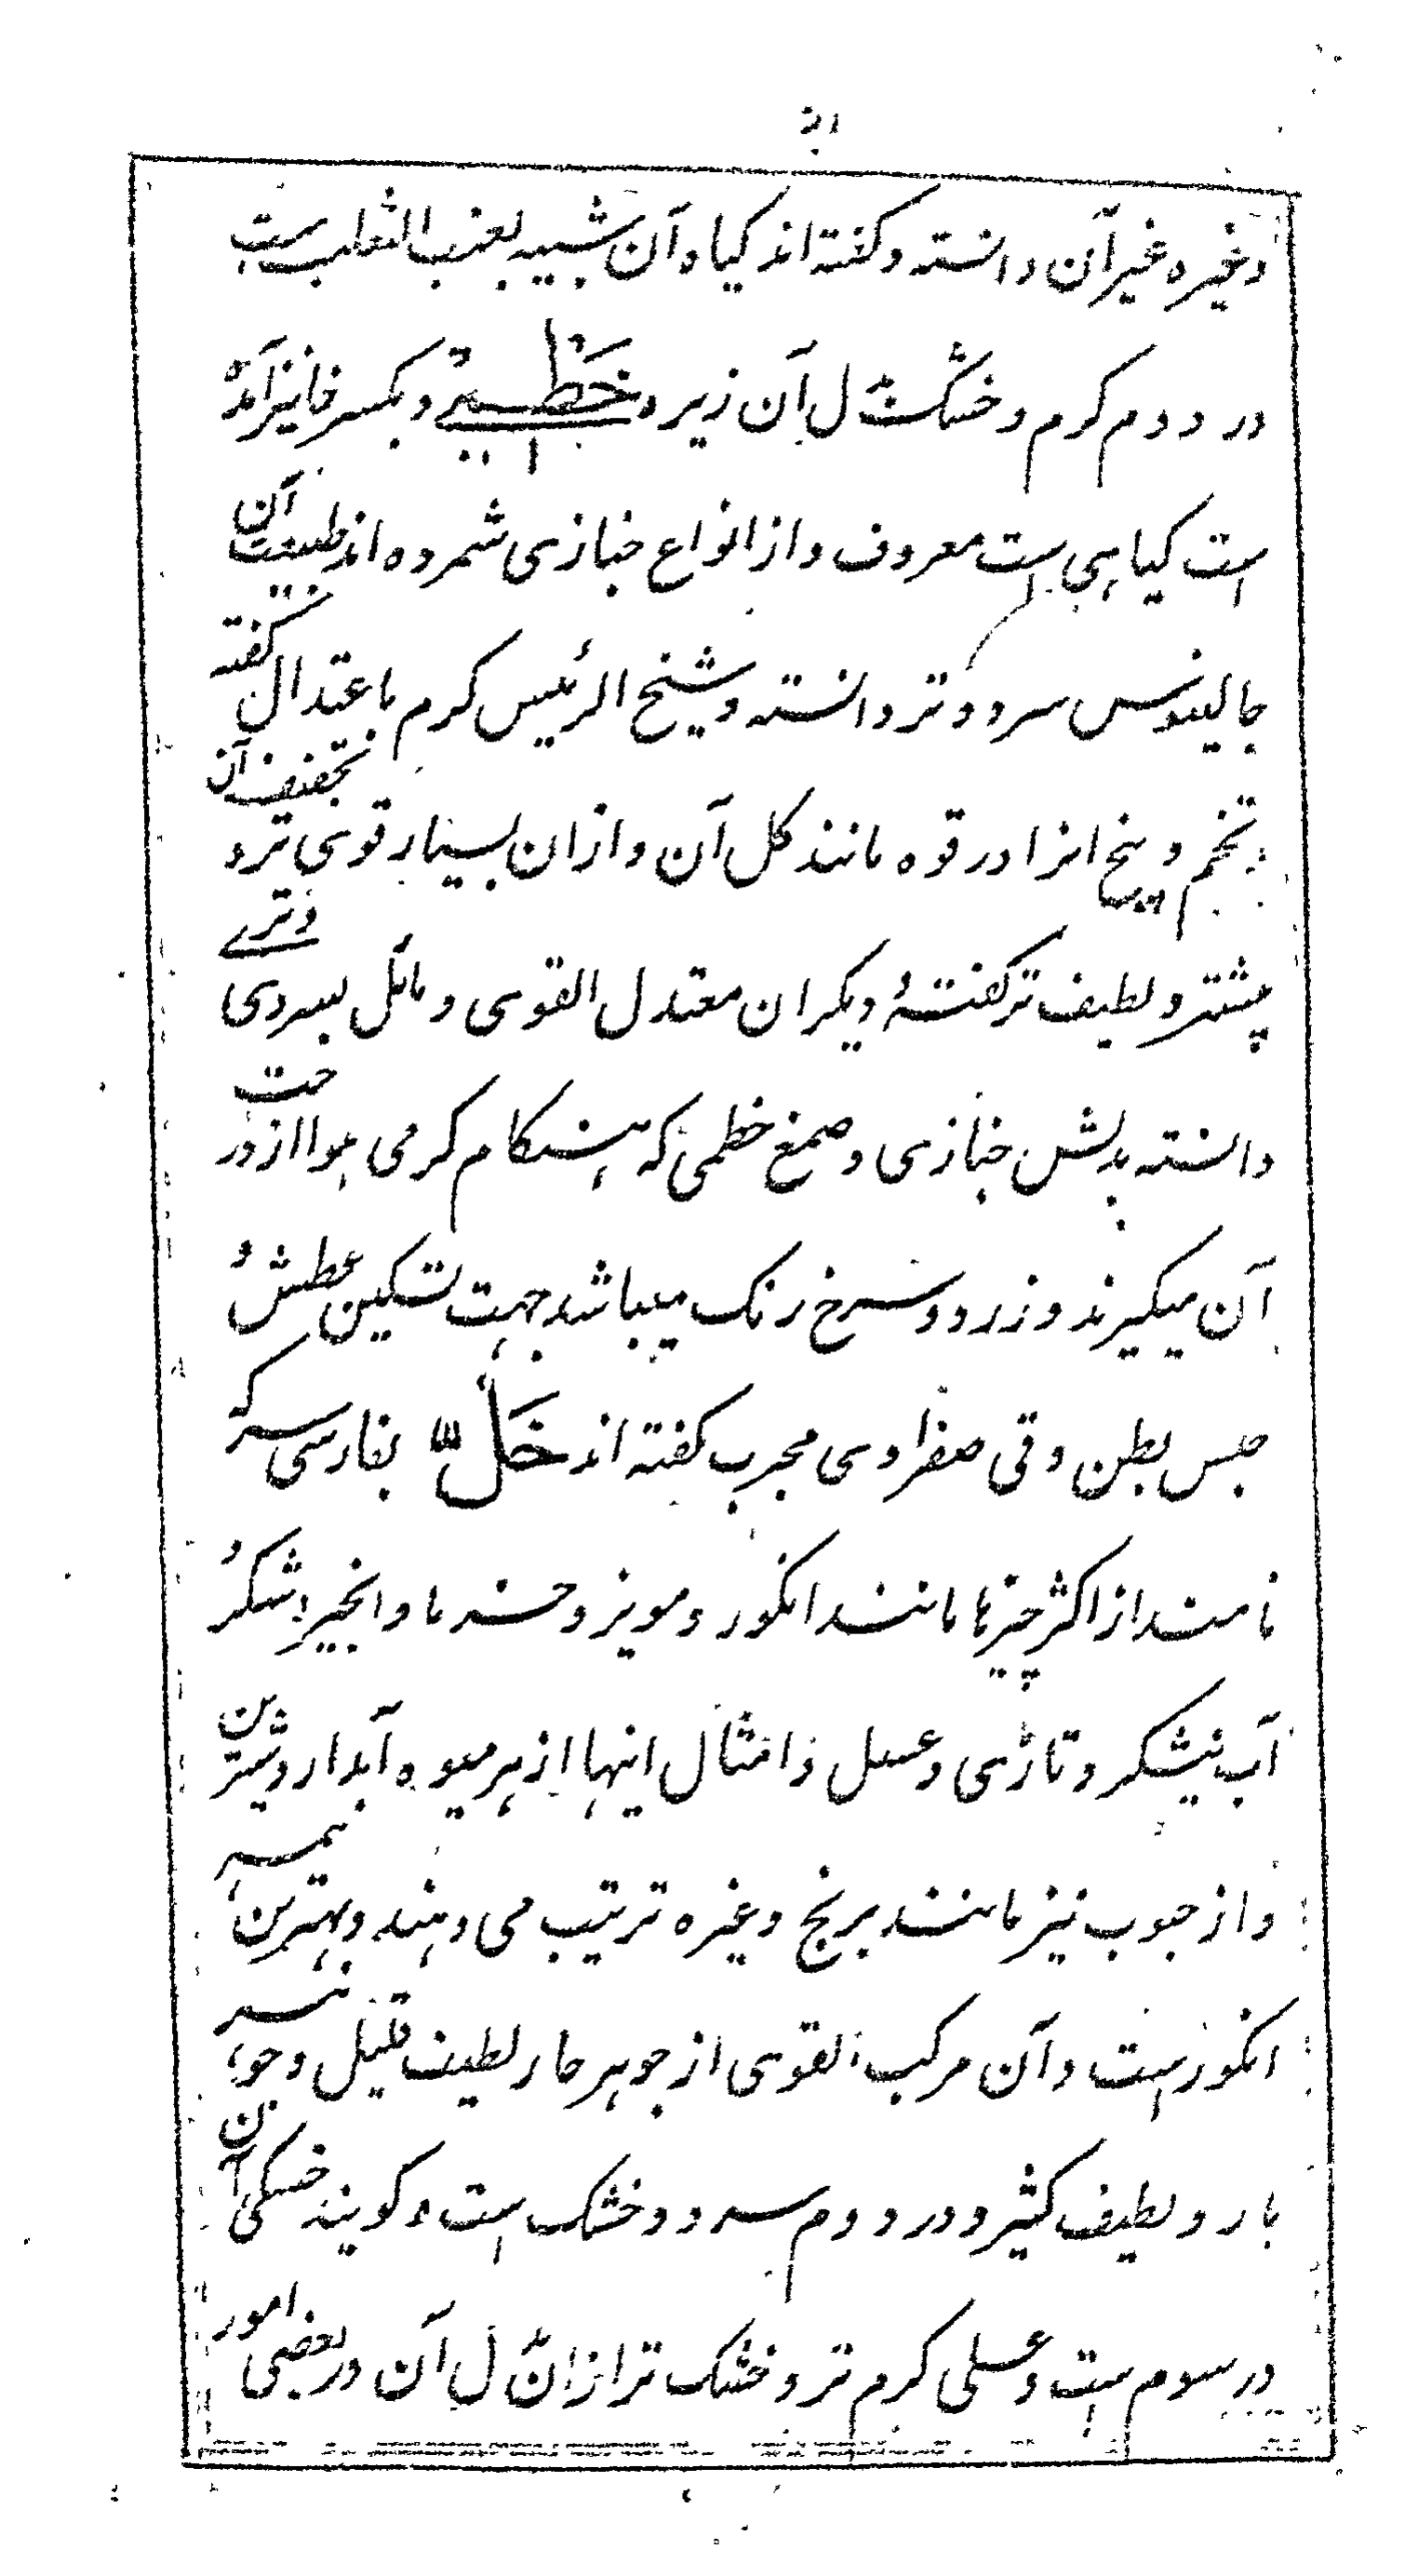 وغیره غیر آن دانسته و کفته اند کیاه آن شبیه بعنب الثعلب است
در دوم کرم و خشک ل آن زیره خَطمی و بکسر خا نیز آمده
است کیاهی است معروف و از انواع خبازی شمرده اند طبیعت آن
جالینوس سرد و تر دانسته و شیخ الرئیس کرم باعتدال کفته
تخم و بیخ انرا در قوه مانند کل آن و ازان بسیار قوی تر و تجفیف آن
بیشتر و لطیف تر کفته دیکران معتدل القوی و مائل بسردی و تری
دانسته بدلش خبازی و صمغ خطمی که هنکام کرمی هوا از درخت
آن میکیرند و زرد و سرخ رنک میباشد جهت تسکین عطش و
حبس بطن و قی صفراوی مجرب کفته اند خَلّ بفارسی سرکه
نامند از اکثر چیزها مانند انکور و مویز و خرما و انجیر و شکر و
آب نیشکر و تاڑی و عسل و امثال اینها از هر میوه آبدار و شیرین
و از حبوب نیز مانند برنج و غیره ترتیب می دهند و بهترین همه
انکور است و آن مرکب القوی از جوهر حار لطیف قلیل و جوهر
بارد لطیف کثیر و در دوم سرد و خشک است و کویند خشکی آن
در سوم است و عسلی کرم تر و خشک تر ازان ل آن در بعضی امور